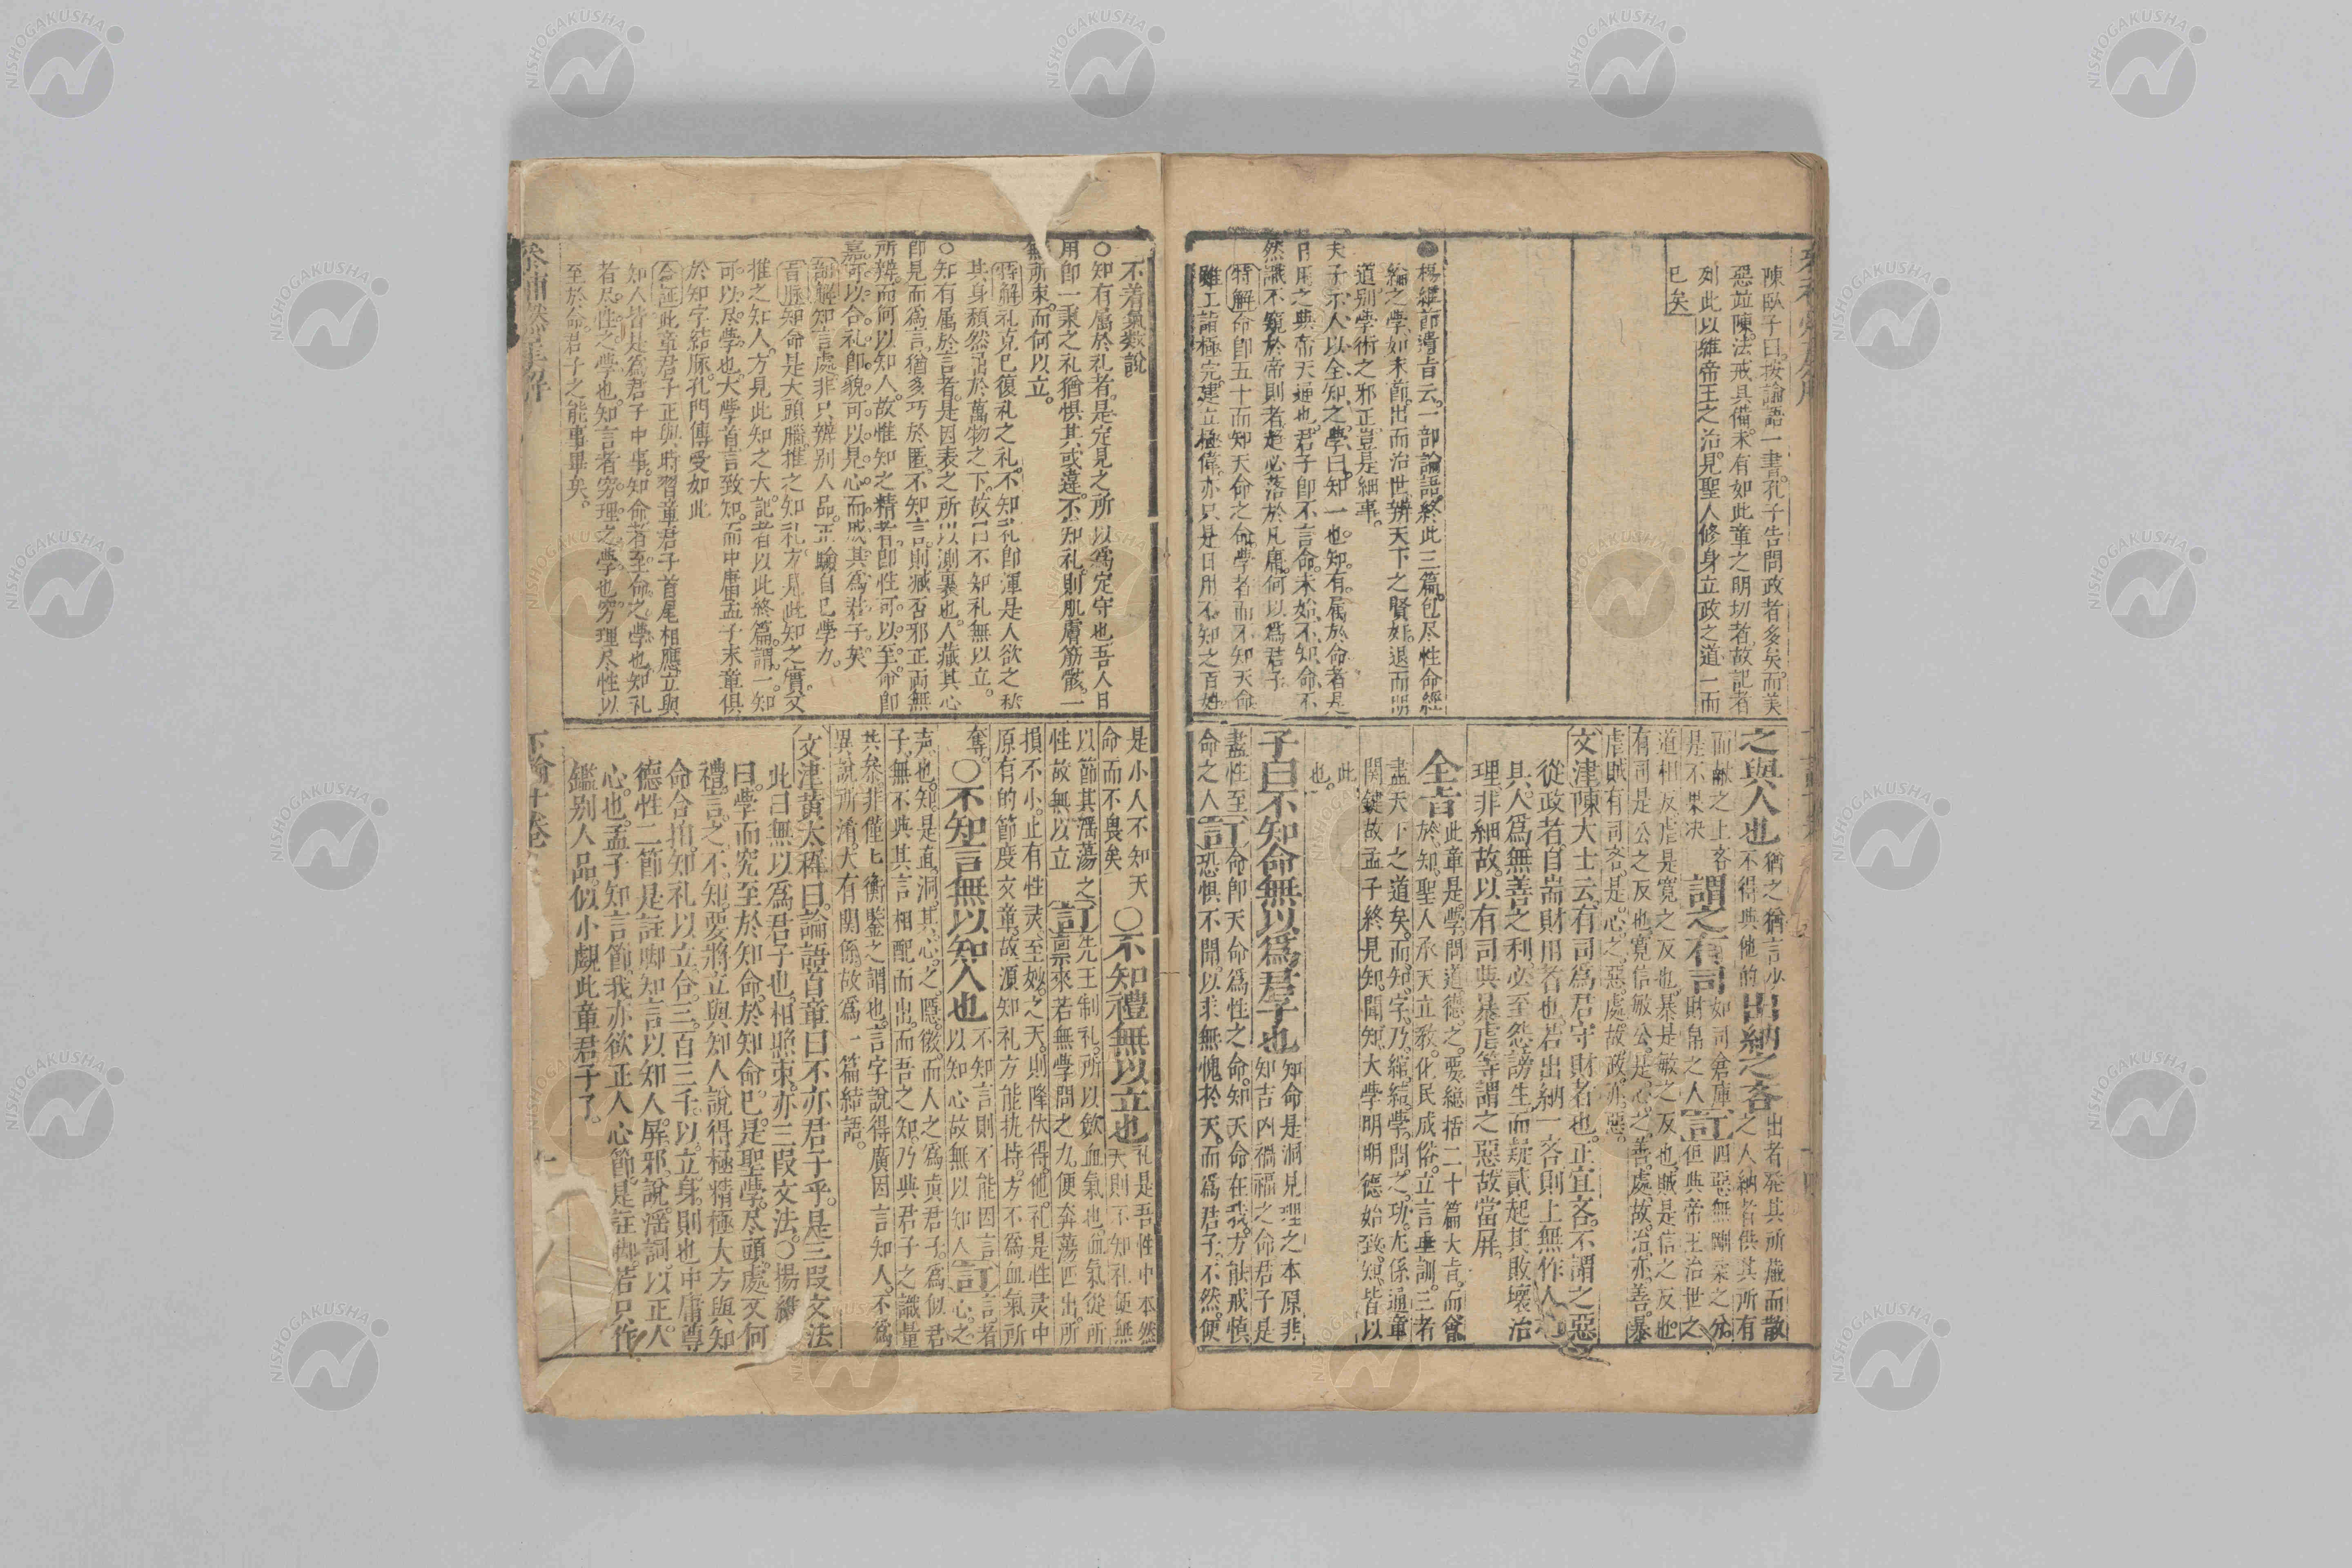 陳臥子曰。按論語一書。孔子告問政者多矣。而美
惡竝陳。法戒具備。未有如此章之明切者。故記者
列此以維帝王之治。見聖人修身立政之道一而
已矣
楊維節遺旨云。一部論語。終此三篇。包尽性命經
綸之學。如末節。出而治世。辨天下之賢奸。退而明
道。別學術之邪正。豈是細事。
夫子示人以全知之學曰。知一也。知有屬於命者。是
日用之與帝天通也。君子卽不言命。未始不知命。不
然識不窺於帝則者。趣必落於凡庸。何以爲君子
特解 命卽五十而知天命之命。學者而不知天命
雖工詣極完。建立極偉。亦只是日用不知之百姓
之與人也 猶之猶言少 不得與他的 出納之吝 出者發其所藏而散
之人納者供其所有
而献之上吝 是不果决 謂之有司 如司倉庫 財帛之人 訂 四惡無剛柔之分。
但與帝王治世之
道相反。虐是寬之反也。暴是敏之反也。賊是信之反也。
有司是公之反也。寬信敏公。是心之善。處故治亦善。暴
虐賊有司吝。是心之惡。處故政亦惡。
文津陳大士云。有司爲君守財者也。正宜吝。不謂之惡
從政者。自耑財用者也。若出納一吝。則上無作人
具。人爲無善之利。必至怨謗生而疑貳起。其敗壞治
理。非細故。以有司與暴虐等謂之惡。故當屏。
全旨 此章是學問道德之要。總括二十篇大旨。而會
於知。聖人承天立教。化民成俗。立言垂訓。三者
盡天下之道矣。而知字。乃縮結學問之功。尤係通章
関鍵。故孟子終見知聞知。大學明明德。始致知。皆以
此
也。
子曰不知命無以爲君子也 知命是洞見理之本原非
知吉凶禍福之命君子是
盡性至 命之人 訂 命卽天命爲性之命。知天命在我。方能戒愼
恐惧不聞。以求無愧於天。而爲君子。不然。便
不着氣數說
○知有屬於礼者。是定見之所以爲定守也。吾人日
用卽一稟之礼。猶惧其或違。不知礼則肌膚筋骸。一
無所束。而何以立。
特解 礼克己復礼之礼。不知礼。卽渾是人欲之私
其身頹然出於萬物之下。故曰不知礼無以立。
○知有属於言者。是因表之所以測裏也。人藏其心
卽見而爲言。猶多巧於匿。不知言。則臧否邪正両無
所辨。而何以知人。故惟知之精者。卽性可以至命。卽
嘉可以合礼。卽貌可以見心。而成其爲君子矣
訓解 知言處。非只辨別人品。正驗自己學力。
旨脉 知命是大頭腦。推之知礼。方見此知之實。又
推之知人。方見此知之大。記者以此終篇。謂一知
可以尽學也。大學首言致知。而中庸孟子末章。俱
於知字結脉。孔門傳受如此
合証 此章君子正與時習章君子首尾相應。立與
知人皆是爲君子中事。知命者。至命之學也。知礼
者尽性之學也。知言者窮理之學也。窮理尽性以
至於命。君子之能事畢矣。
是小人不知天
命而不畏矣 ○不知禮無以立也 礼是吾性中本然
天則不知礼便無
以節其淫蕩之
性故無以立 訂 先王制礼。所以歛血氣也。血氣從所
禀來。若無學問之力。便奔蕩四出。所
損不小。止有性灵至妙之天。則降伏得他。礼是性灵中
原有的節度文章。故源知礼方能扶持。方不爲血氣所
奪。○不知言無以知人也 不知言則不能因言
以知心故無以知人 訂 言者
心之
声也。知是直洞其心之隱微。而人之爲眞君子。爲似君
子。無不與其言相配而出。而吾之知。乃與君子之識量
共參。非僅七衡鑒之謂也。言字說得廣。因言知人。不爲
異說所淆。大有関係。故爲一篇結語。
文津黄太穉曰。論語首章曰不亦君子乎。是三段文法
此曰無以爲君子也。相照束。亦三段文法。○楊維
曰。學而究至於知命。於知命。已是聖學。尽頭處。又何
禮言之不知。要將立與知人說得極精極大。方與知
命合拍。知礼以立。合三百三千。以立身則也。中庸尊
德性二節。是註脚。知言以知人。屏邪說。淫詞。以正人
心也。孟子知言節。我亦欲正人心節。是註脚。若只作
鑑别人品。似小覷此章君子了。